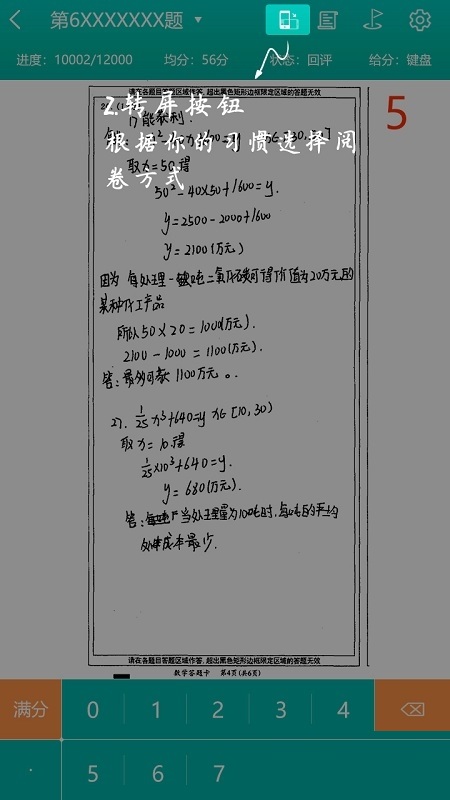 第6XXXXXXX题
进度：10002/12000 均分：56分 状态：回评 给分：键盘
请在各题目答题区域作答，超出黑色矩形边框限定区域的答题无效
5
2.转屏按钮
根据你的习惯选择阅
卷方式
1) 能获利.
取x=50得
50²-40×50+1600=y.
y=2500-2000+1600
y=2100(万元)
因为 每处理一吨二氧化碳可得价值为20万元的
某种化工产品
所以50×20=1000(万元).
2100-1000=1100(万元).
答:最多可获1100万元。.
2). 1/25 x³+640=y x∈[10,30)
取x=10.得
1/25×10³+640=y.
y=680(万元).
答: 当处理量为100吨时,每吨的平均
处理成本最少.
请在各题目答题区域作答，超出黑色矩形边框限定区域的答题无效
数学答题卡 第4页(共6页)
满分 0 1 2 3 4
. 5 6 7